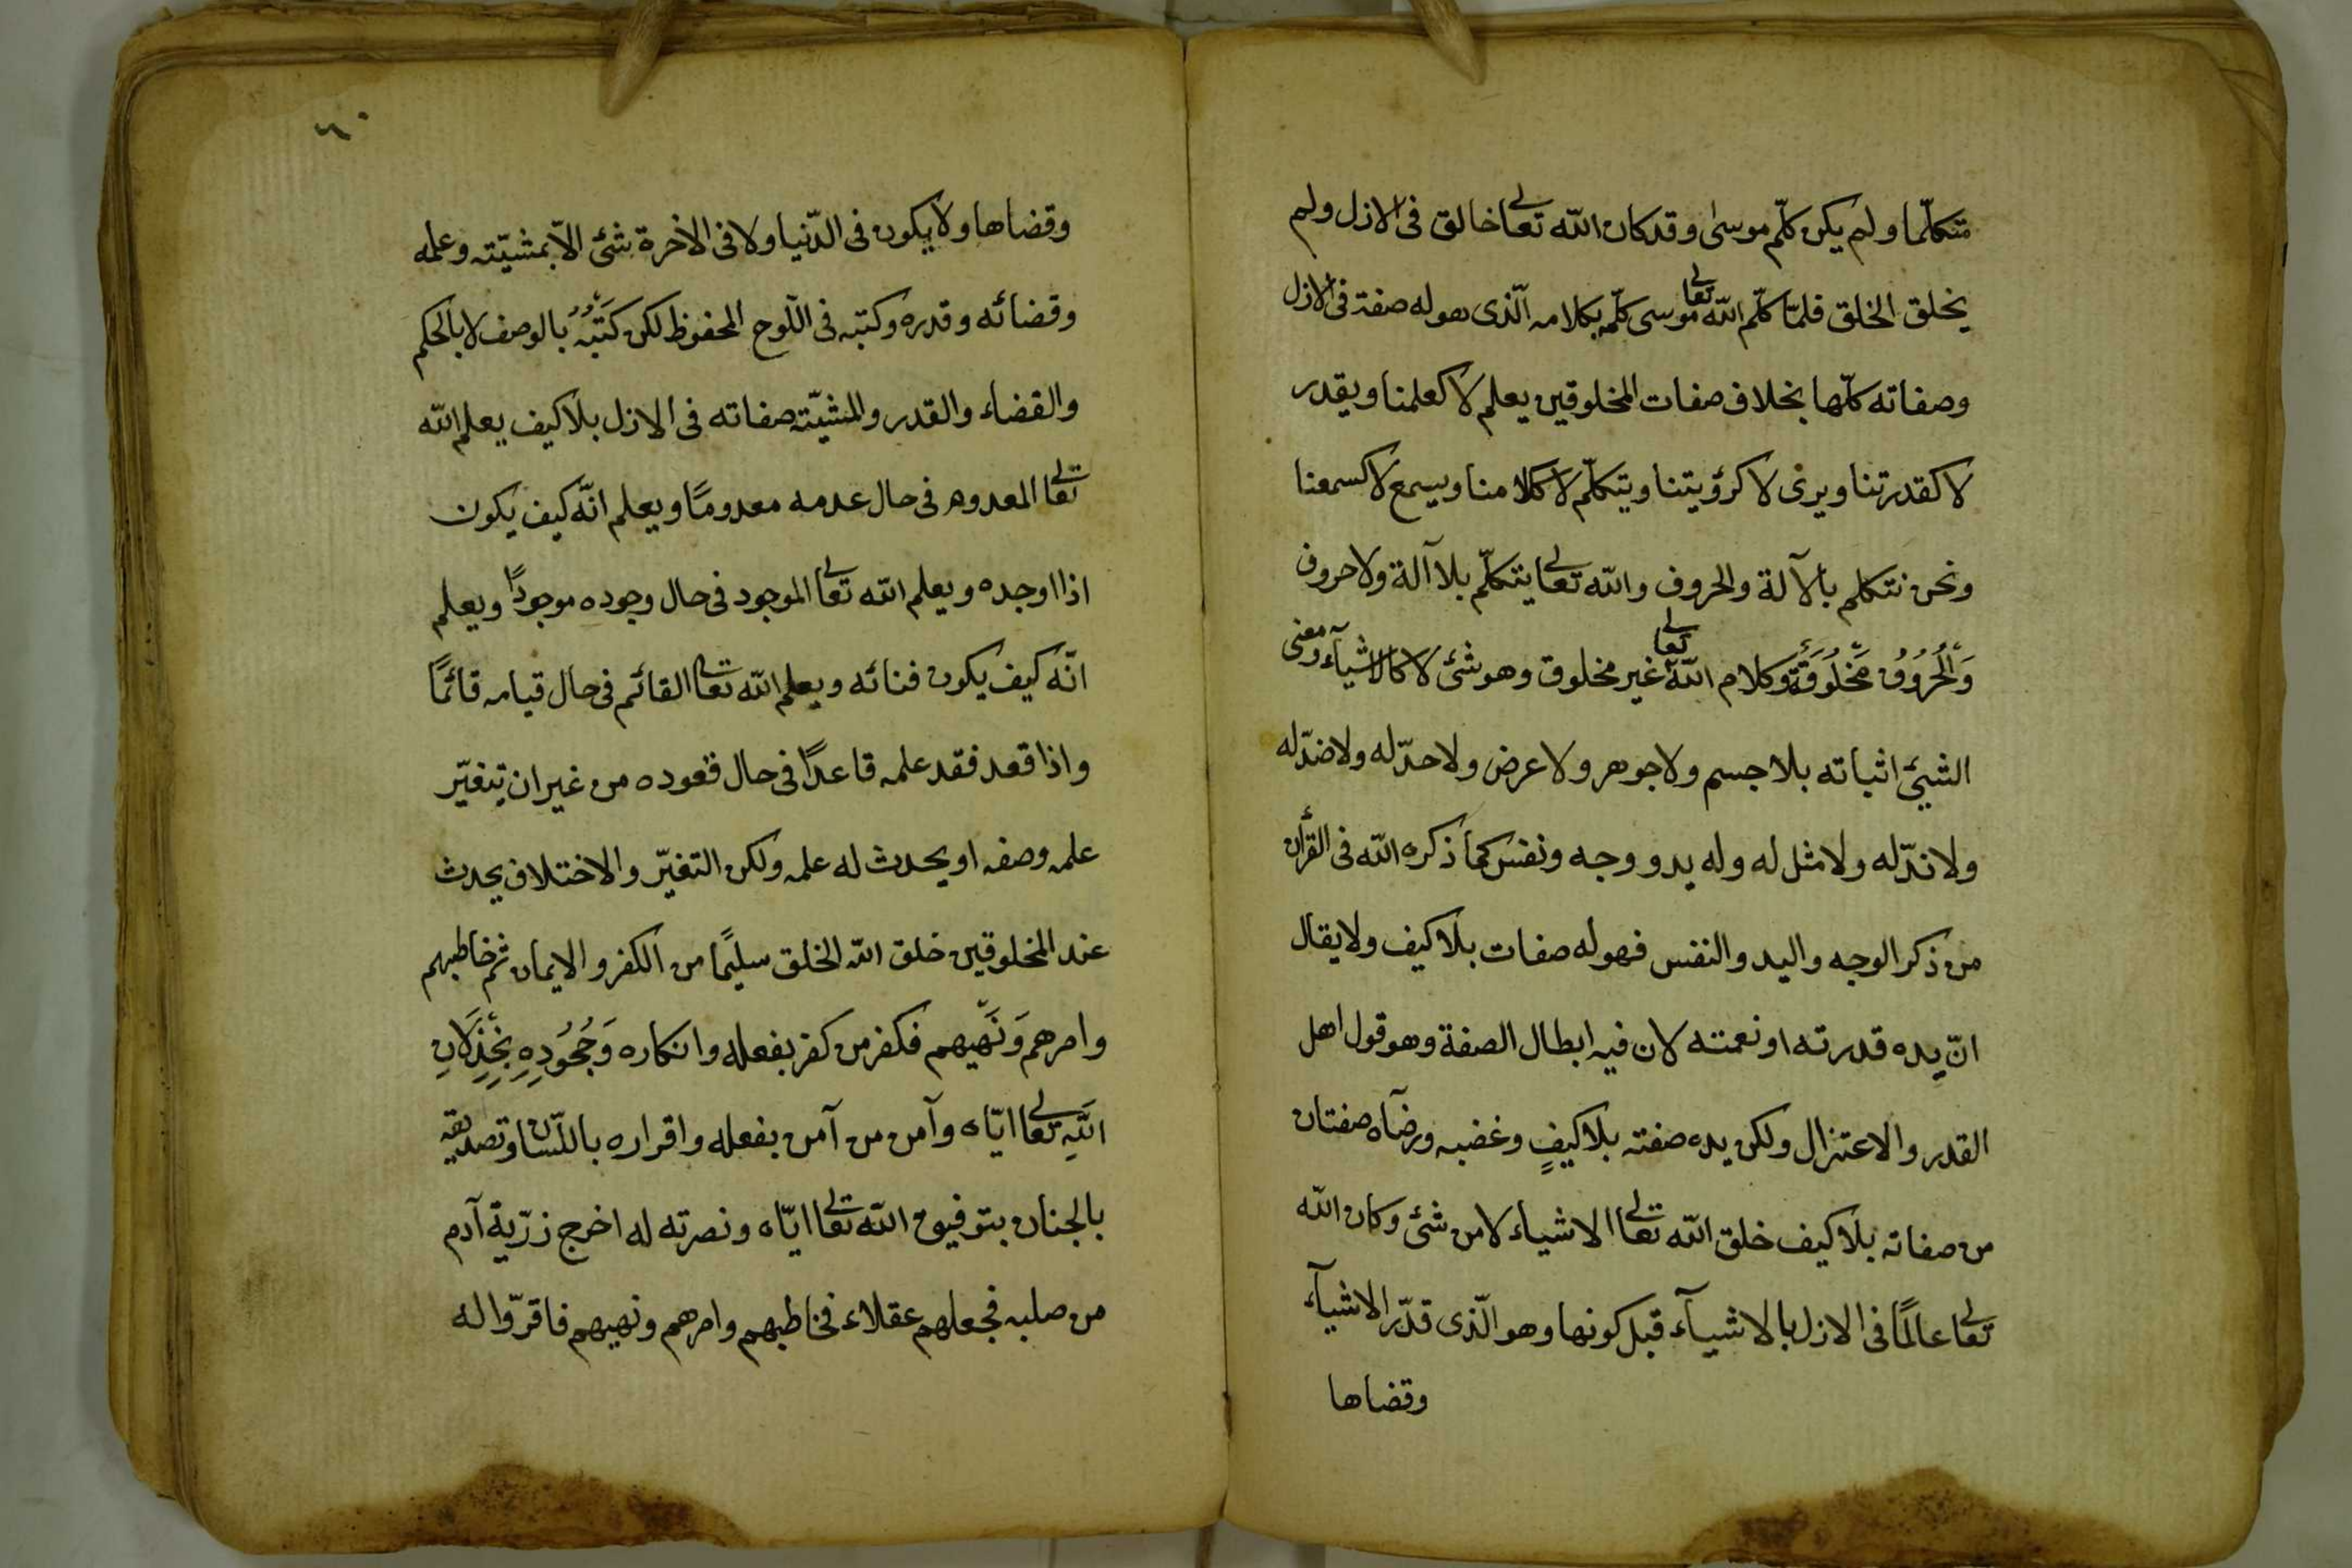 متكلّما ولم يكن كلّم موسى وقد كان الله تعالى خالق فى الازل ولم
يخلق الخلق فلمّا كلّم الله تعالى موسى كلّمه بكلامه الّذى هو له صفة فى الازل
وصفاته كلّها بخلاف صفات المخلوقين يعلم لا كعلمنا ويقدر
لا كقدرتنا ويرى لا كرؤيتنا ويتكلّم لا ككلامنا ويسمع لا كسمعنا
ونحن نتكلم بالآلة والحروف والله تعالى يتكلّم بلا آلة ولا حروف
وَالْحُرُوُفُ مَخْلُوقَةٌ وكلام الله تعالى غير مخلوق وهو شئ لا كالاشيآء ومعنى
الشيئ اثباته بلا جسم ولا جوهر ولا عرض ولا حدّ له ولا ضدّ له
ولا ندّ له ولا مثل له وله يد ووجه ونفس كما ذكره الله فى القرأن
من ذكر الوجه واليد والنفس فهو له صفات بلا كيف ولا يقال
انّ يده قدرته او نعمته لان فيه ابطال الصفة وهو قول اهل
القدر والاعتزال ولكن يده صفته بلا كيفٍ وغضبه ورضآه صفتان
من صفاته بلا كيف خلق الله تعالى الاشياء لا من شئ وكان الله
تعالى عالمًا فى الازل بالاشيآء قبل كونها وهو الّذى قدّر الاشيآء
وقضاها
٦٠
وقضاها ولا يكون فى الدّنيا ولا فى الاخرة شئ الاّ بمشيّته وعلمه
وقضائه وقدره وكتبه فى اللّوح المحفوظ لكن كَتَبُهُ بالوصف لا بالحكم
والقضاء والقدر والمشيّته صفاته فى الازل بلا كيف يعلم الله
تعالى المعدوم فى حال عدمه معدومًا ويعلم انّه كيف يكون
اذا اوجده ويعلم الله تعالى الموجود فى حال وجوده موجودًا ويعلم
انّه كيف يكون فنائه ويعلم الله تعالى القائم فى حال قيامه قائمًا
واذا قعد فقد علمه قاعدًا فى حال قعوده من غير ان يتغيّر
علمه وصفه او يحدث له علمه ولكن التغيّر والاختلاف يحدث
عند المخلوقين خلق الله الخلق سليمًا من الكفر والايمان ثم خاطبهم
وامرهم وَنَهَيهم فكفر من كفر بفعله وانكاره وَجُحُودِهِ بِخِذْلَانِ
اللَّهِ تعالى ايّاه وآمن من آمن بفعله واقراره باللّسان وتصديقه
بالجنان بتوفيق الله تعالى ايّاه ونصرته له اخرج زرّية آدم
من صلبه فجعلهم عقلاء فخاطبهم وامرهم ونهيهم فاقرّوا له